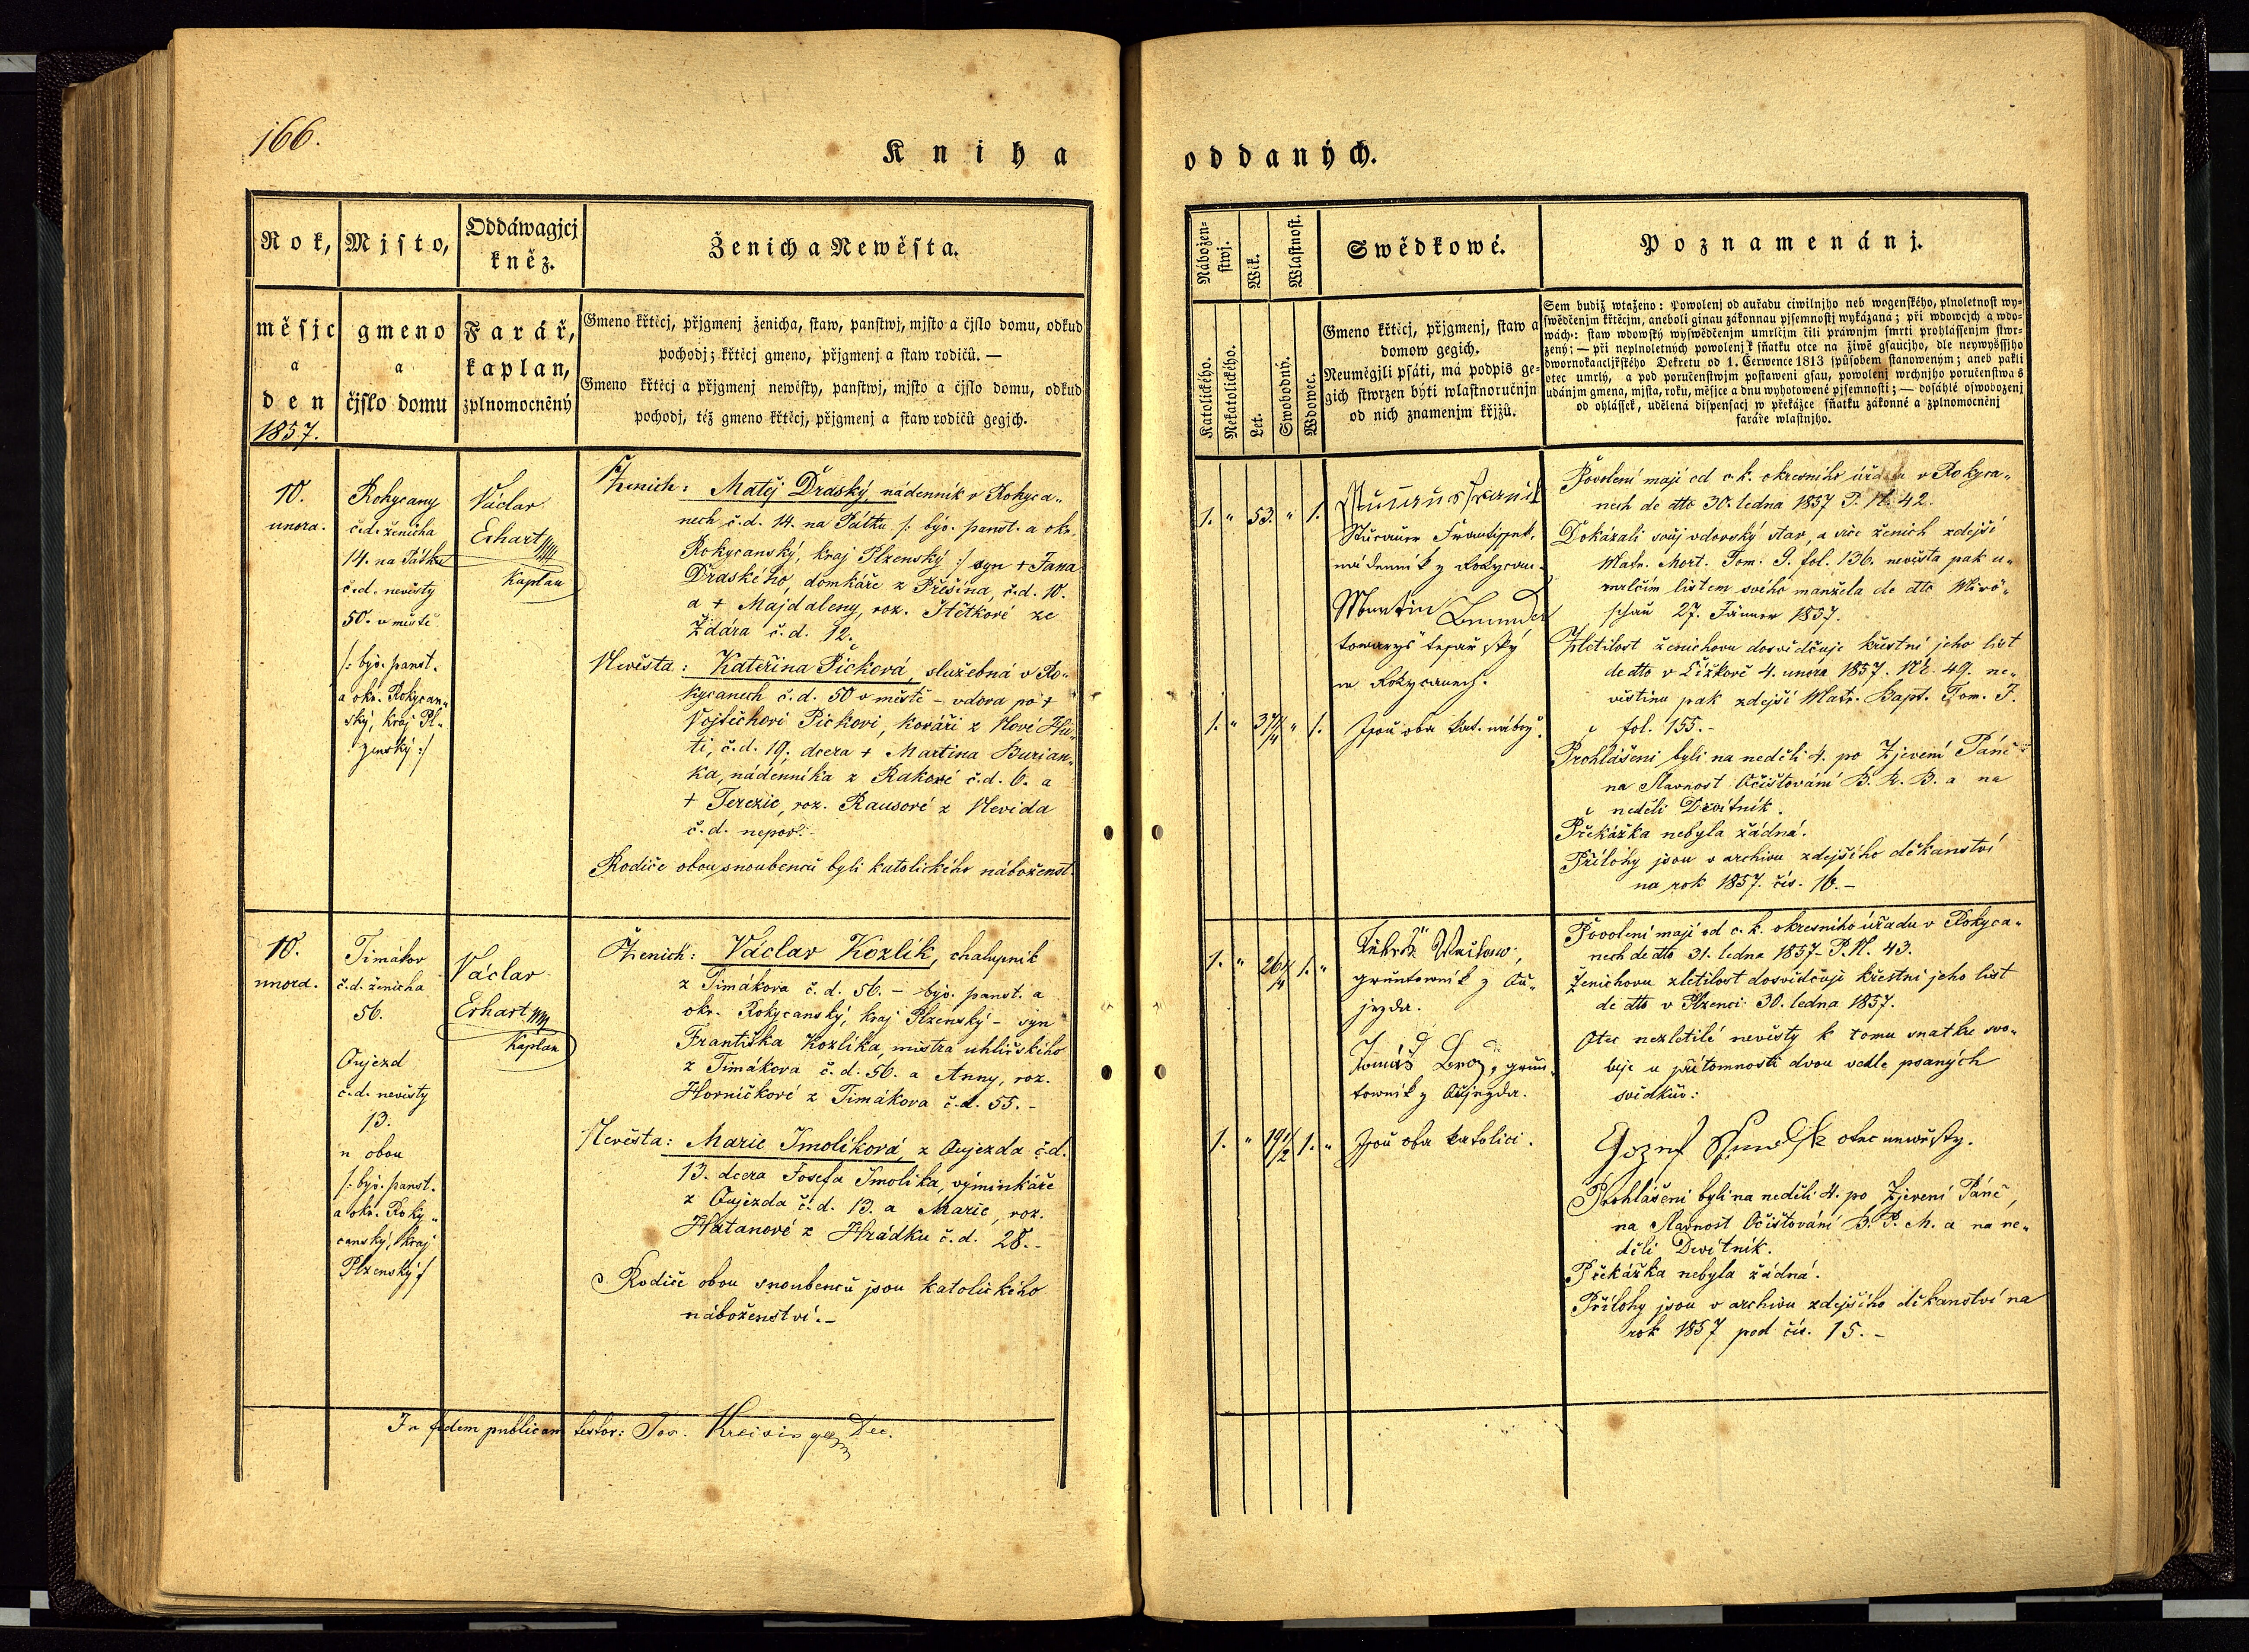 166.
Kniha
oddaných.
Rok,
měsjc
a
den
1857.
Mjsto,
gmeno
a
čjslo domu
Oddáwagjcj
kněz.
Farář,
kaplan,
zplnomocněný
Ženich a Newěsta.
Gmeno křtěcj, přjgmenj ženicha, staw, panstwj, mjsto a čjslo domu, odkud
pochodj; křtěcj gmeno, přjgmenj a staw rodičů. —
Gmeno křtěcj a přjgmenj newěsty, panstwj, mjsto a čjslo domu, odkud
pochodj, též gmeno křtěcj, přjgmenj a staw rodičů gegjch.
10.
unora.
Rokycany
č.d. ženicha
14. na Pátku
č.d. nevěsty
50. v městě
/: býv. panst.
a okr. Rokycan„
ský, kraj Pl„
zenský :/
Václav
Erhart
Kaplan
Ženich: Matěj Draský, nádenník v Rokyca„
nech, č.d. 14. na Pátku /: býv. panst. a okr.
Rokycanský, kraj Plzenský :/ syn + Jana
Draského, domkáře z Příšina, č.d. 10.
a + Majdaleny, roz. Štětkové ze
Ždára č.d. 12.
Nevěsta: Kateřina Picková, služebná v Ro„
kycanech č.d. 50 v městě – vdova po +
Vojtěchovi Pickovi, kováři z Nové Hu„
ti, č.d. 19, dcera + Martina Burian„
ka, nádenníka z Rakové č.d. 6. a
+ Terezie, roz. Rausové z Nevida
č.d. nepov.
Rodiče obou snoubenců byli katolického náboženst.
10.
unora.
Timákov
č.d. ženicha
56.
Oujezd
č.d. nevěsty
13.
n obou
/: býv. panst.
a okr. Roky„
canský, kraj
Plzenský :/
Václav
Erhart
Kaplan
Ženich: Václav Kozlík, chalupník
z Timákova č.d. 56. – býv. panst. a
okr. Rokycanský, kraj Plzenský – syn
Františka Kozlíka, mistra uhlířského
z Timákova č.d. 56. a Anny, roz.
Horničkové z Timákova č.d. 55. –
Nevěsta: Marie Smolíková, z Oujezda č.d.
13. dcera Josefa Smolíka, výminkáře
z Oujezda č.d. 13. a Marie, roz.
Hatanové z Hrádku č.d. 28. –
Rodiče obou snoubenců jsou katolického
náboženství. –
In fidem publicam testor: Jos. Kreisinger Dec.
Nábožen=
stwj.
Katolického.
Nekatolického.
Wěk.
Let.
Wlastnost.
Swobodnú.
Wdowec.
Swědkowé.
Gmeno křtěcj, přjgmenj, staw a
domow gegich.
Neuměgjli psáti, má podpis ge=
gich stwrzen býti wlastnoručnjm
od nich znamenjm křjžů.
Poznamenánj.
Sem budiž wtaženo: Powolenj od auřadu ciwilnjho neb wogenského, plnoletnost wy=
swědčenjm křtěcjm, aneboli ginau zákonnau pjsemnostj wykázaná; při wdowcjch a wdo=
wách: staw wdowský wyswědčenjm umrlčjm čili práwnjm smrti prohlássenjm stwr=
zený; — při neplnoletných powolenj k sňatku otce na žiwě gsaucjho, dle neywyššjho
dwornokancljřského Dekretu od 1. Čerwence 1813 spůsobem stanoweným; aneb pakli
otec umrlý, a pod poručenstwjm postaweni gsau, powolenj wrchnjho poručenstwa s
udánjm gmena, mjsta, roku, měsjce a dnu wyhotowené pjsemnosti; — dosáhlé oswobozenj
od ohlássek, udělená dispensacj w překážce sňatku zákonné a zplnomocněnj
faráře wlastnjho.
1. „ 53. „ 1.
Frantissek,
nádennik z Rokycan.
Martin
towarys tesařský
w Rokycanech.
1. „ 37 1/4 „ 1.
Jsou oba kat. nábož.
Povolení mají od c.k. okresního úřadu v Rokyca„
nech de dtto 30. ledna 1857 P. N. 42.
Dokázali svůj vdovský stav, a sice ženich zdejší
Matr. Mort. Tom. 9. fol. 136. nevěsta pak u„
mrlčím listem svého manžela de dtto Mirö„
schau 27. Jänner 1857.
Zletilost ženichovu dosvědčuje křestní jeho list
de dtto v Čížkově 4. unora 1857. Nr. 49. ne„
věstinu pak zdejší Matr. Bapt. Tom. 7.
fol. 155. –
Prohlášeni byli na neděli 4. po Zjevení Páně
na Slavnost Očišťování B. R. B. a na
neděli Devítník.
Překážka nebyla žádná.
Přílohy jsou v archivu zdejšího děkanství
na rok 1857. čís. 16. –
1. „ 26 1/4 1. „
gruntownik z Ou„
jezda.
Tomáš Brož, grun„
townik z Oujezda.
1. „ 19 1/2 1. „
Jsou oba katolici.
Povolení mají od c.k. okresního úřadu v Rokyca„
nech de dtto 31. ledna 1857 – P. N. 43.
Ženichovu zletilost dosvědčuje křestní jeho list
de dtto v Plzenci 30. ledna 1857.
Otec nezletilé nevěsty k tomu snatku svo„
luje u přítomnosti dvou vedle psaných
svědkův:
otec newěsty.
Prohlášeni byli na neděli 4. po Zjevení Páně,
na Slavnost Očišťování B. P. M. a na ne„
děli Devítník.
Překážka nebyla žádná.
Přílohy jsou v archivu zdejšího děkanství na
rok 1857 pod čís. 15. –